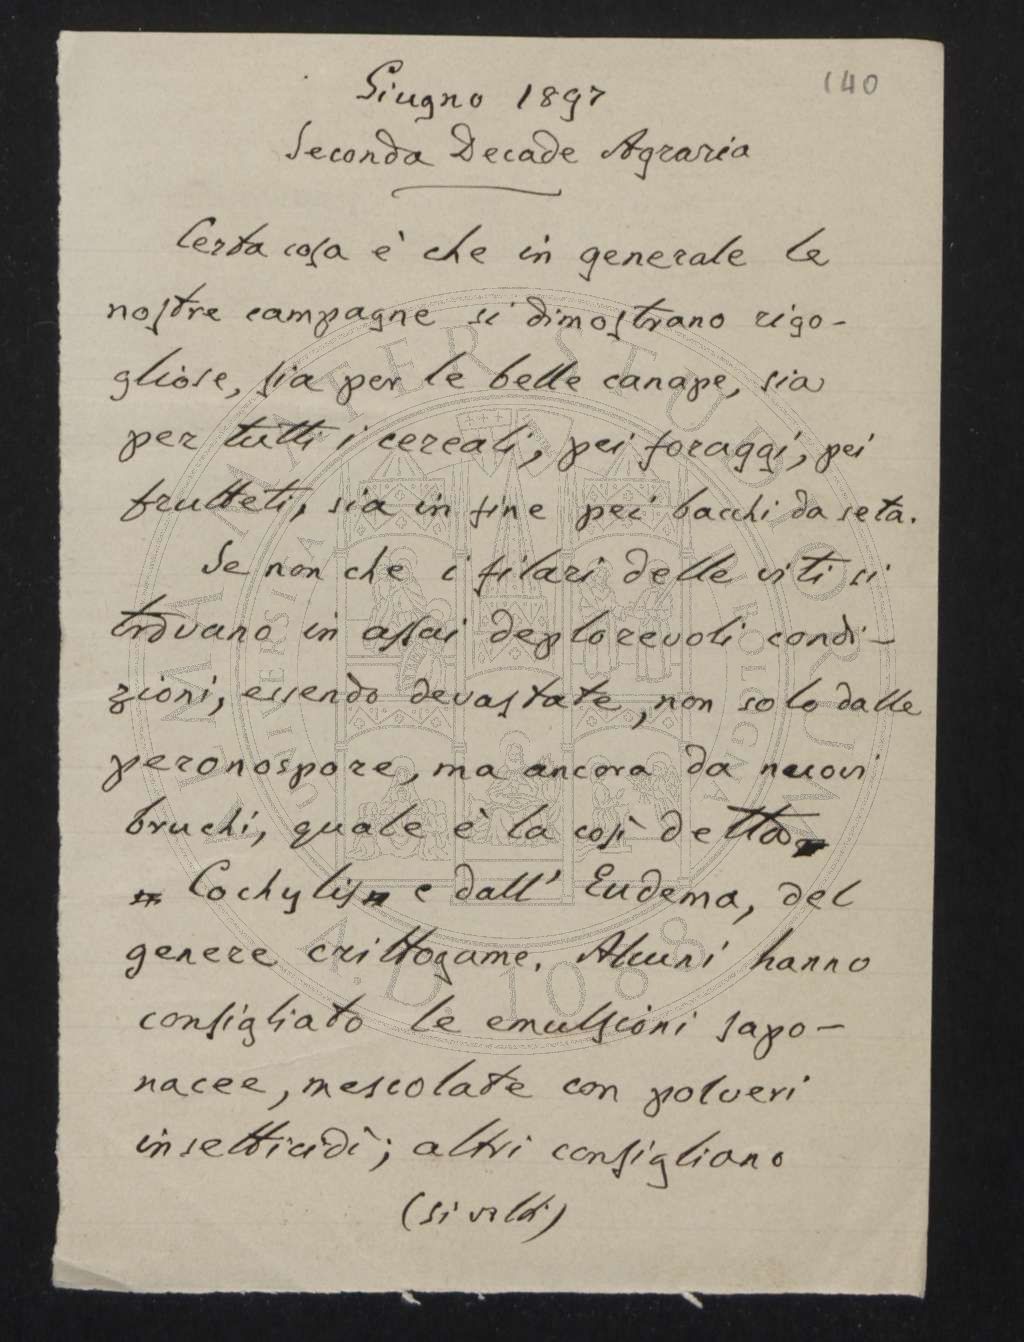 140
Giugno 1897
Seconda Decade Agraria
Certa cosa è che in generale le
nostre campagne si dimostrano rigo-
gliose, sia per le belle canape, sia
per tutti i cereali, pei foraggi, pei
frutteti, sia in fine pei bacchi da seta.
Se non che i filari delle viti si
trovano in assai deplorevoli condi-
zioni, essendo devastate, non solo dalle
peronospore, ma ancora da nuovi
bruchi, quale è la così detta
Cochylis e dall' Eudema, del
genere crittogame. Alcuni hanno
consigliato le emulsioni sapo-
nacee, mescolate con polveri
insetticidi; altri consigliano
(si volti)
ALMA MATER STUDIORUM
UNIVERSITA DI BOLOGNA
A.D. 1088